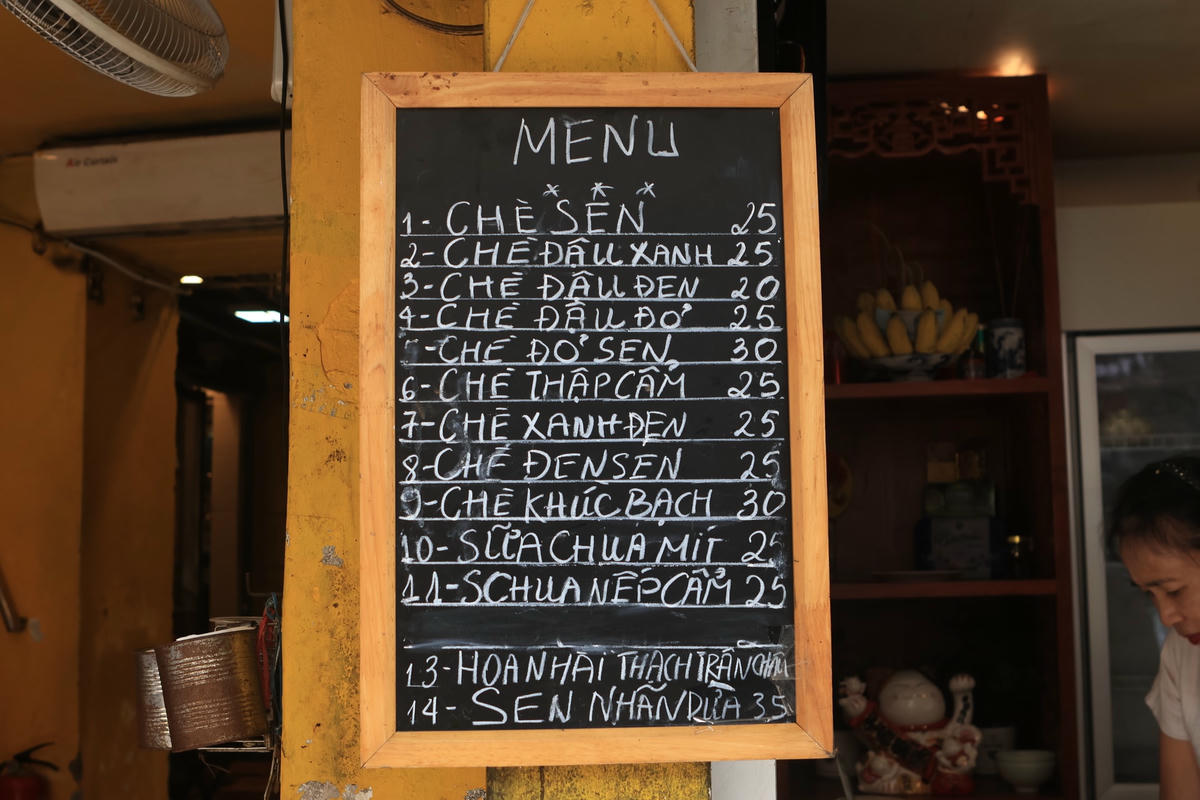 Air Curtain
MENU
* * *
1- CHÈ SEN 25
2- CHÈ ĐẬU XANH 25
3- CHÈ ĐẬU ĐEN 20
4- CHÈ ĐẬU ĐỎ 25
5- CHÈ ĐỎ SEN 30
6- CHÈ THẬP CẨM 25
7- CHÈ XANH ĐEN 25
8- CHÈ ĐEN SEN 25
9- CHÈ KHÚC BẠCH 30
10- SỮA CHUA MÍT 25
11- SCHUA NẾP CẨM 25
13- HOA NHÀI THẠCH TRÂN CHÂU
14- SEN NHÃN DỪA 35